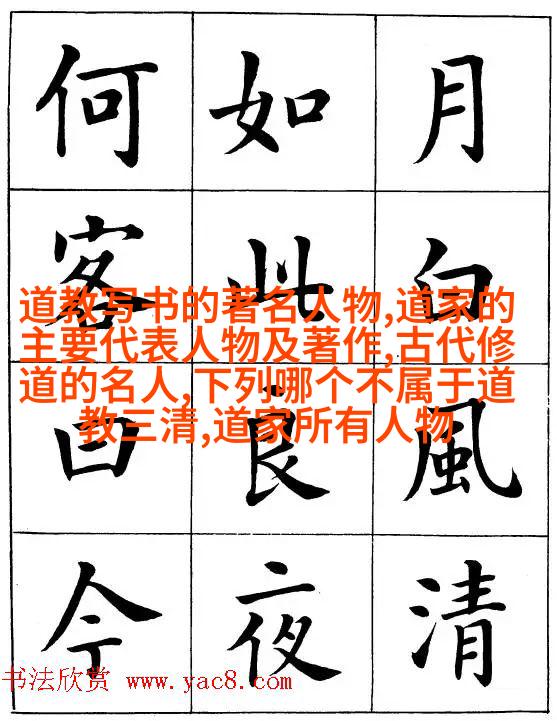 月白風清
如此良夜
何客曰今
道教写书的著名人物,道家的
主要代表人物及著作,古代修
道的名人,下列哪个不属于道
教三清,道家所有人物
书法欣赏 www.yac8.com